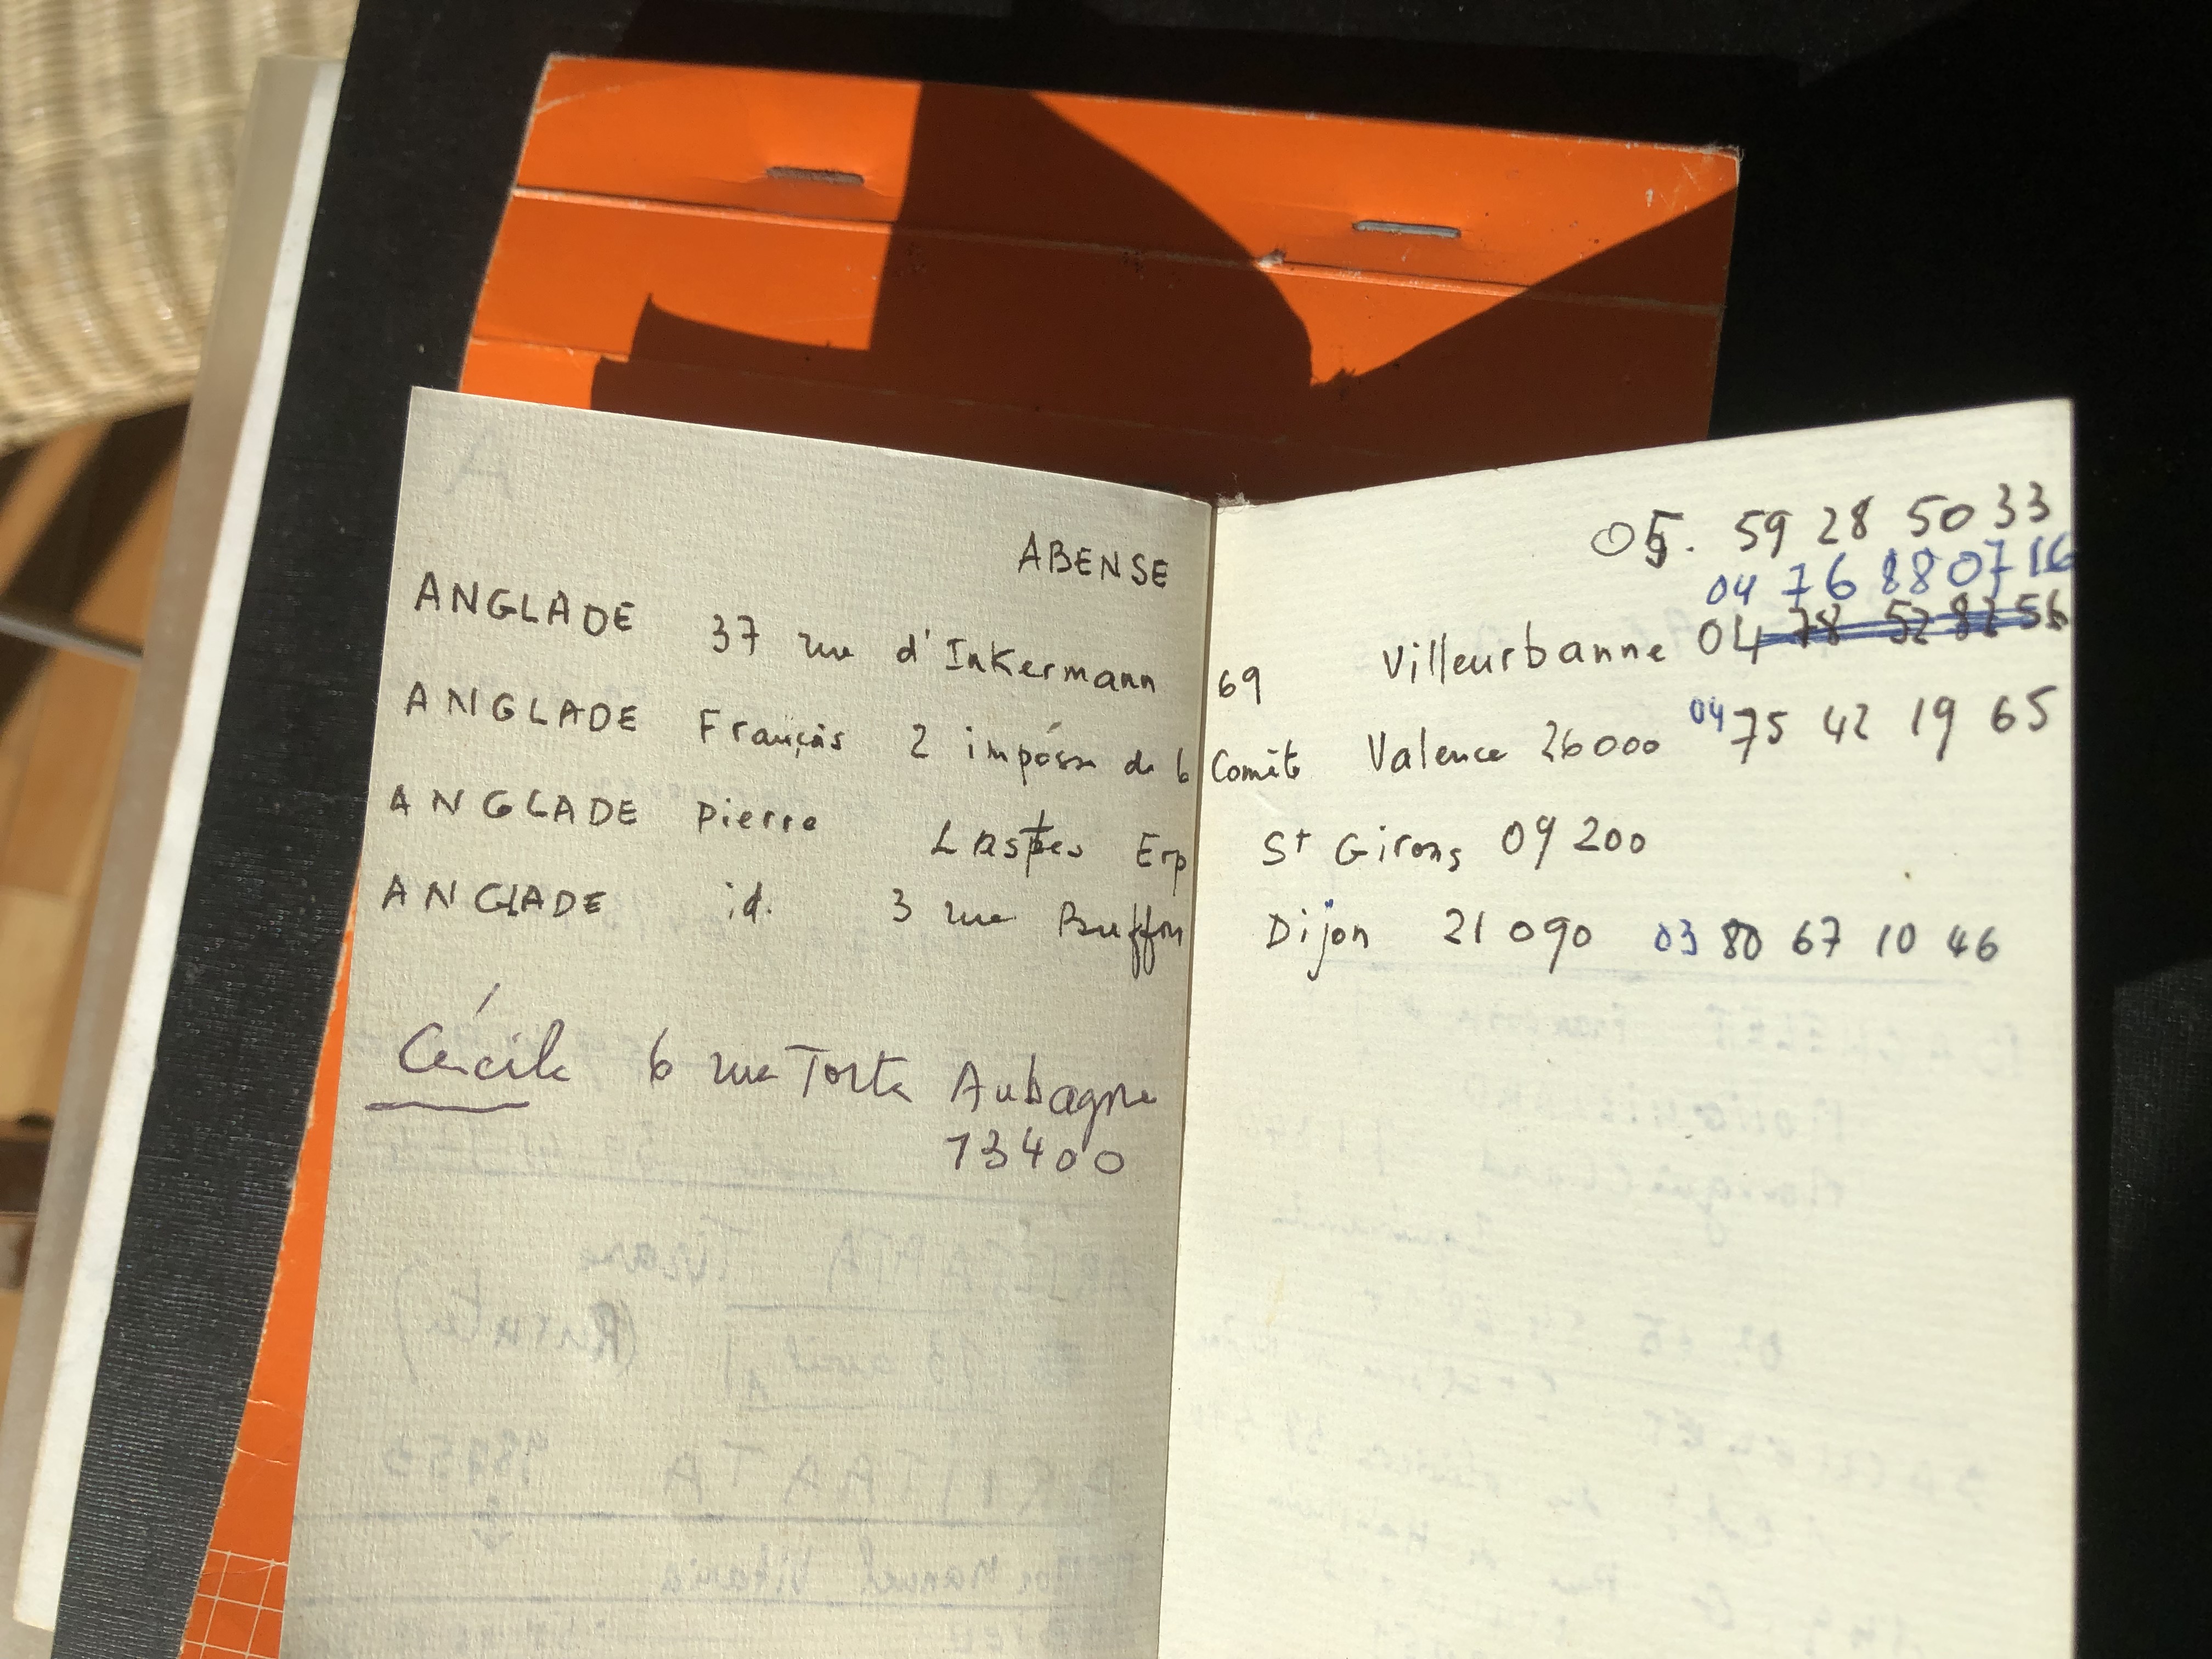 A
ABENSE 05. 59 28 50 33
04 76 88 07 16
ANGLADE 37 rue d'Inkermann 69 Villeurbanne 04 78 52 82 56
ANGLADE François 2 impasse de la Comète Valence 26000 04 75 42 19 65
ANGLADE Pierre Lastes Erp St Girons 09 200
ANGLADE id. 3 rue Buffon Dijon 21 090 03 80 67 10 46
Cécile 6 rue Torte Aubagne
13400